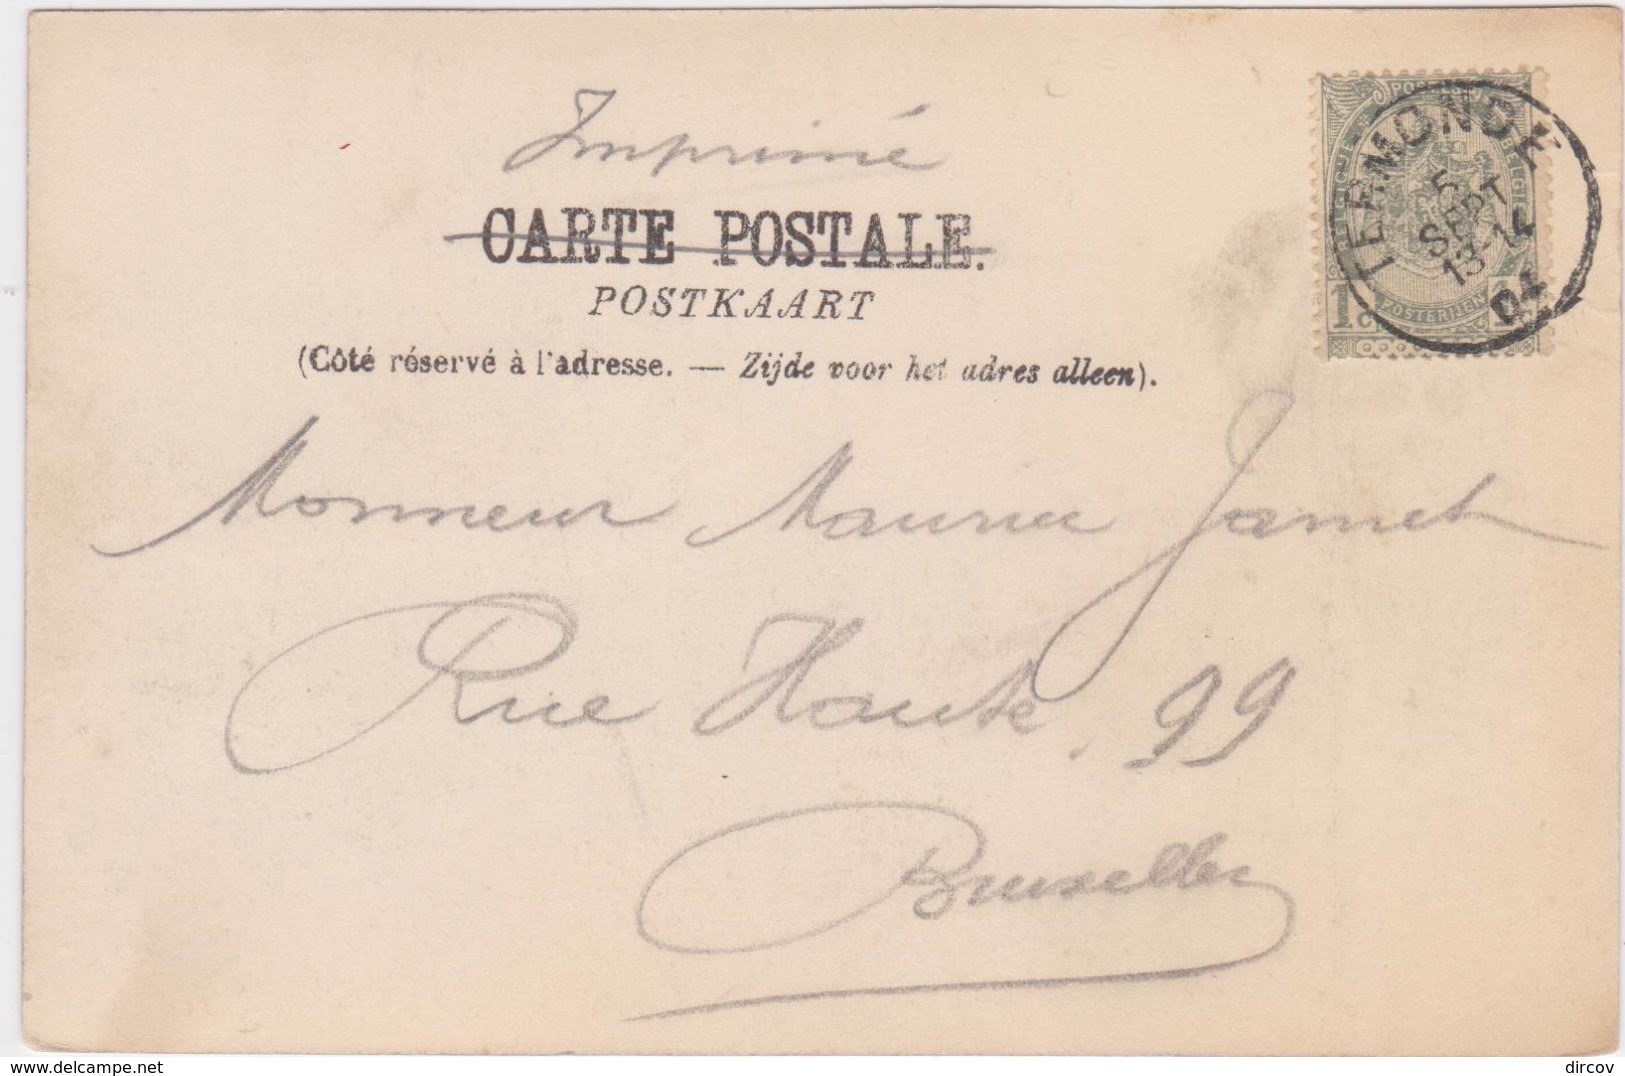 Imprimé
CARTE POSTALE.
POSTKAART
(Côté réservé à l'adresse. — Zijde voor het adres alleen).
TERMONDE
5
SEPT
13-14
04
POSTERIJEN
1
Monsieur Maurice Jamet
Rue Haute, 99
Bruxelles
delcampe.net
dircov